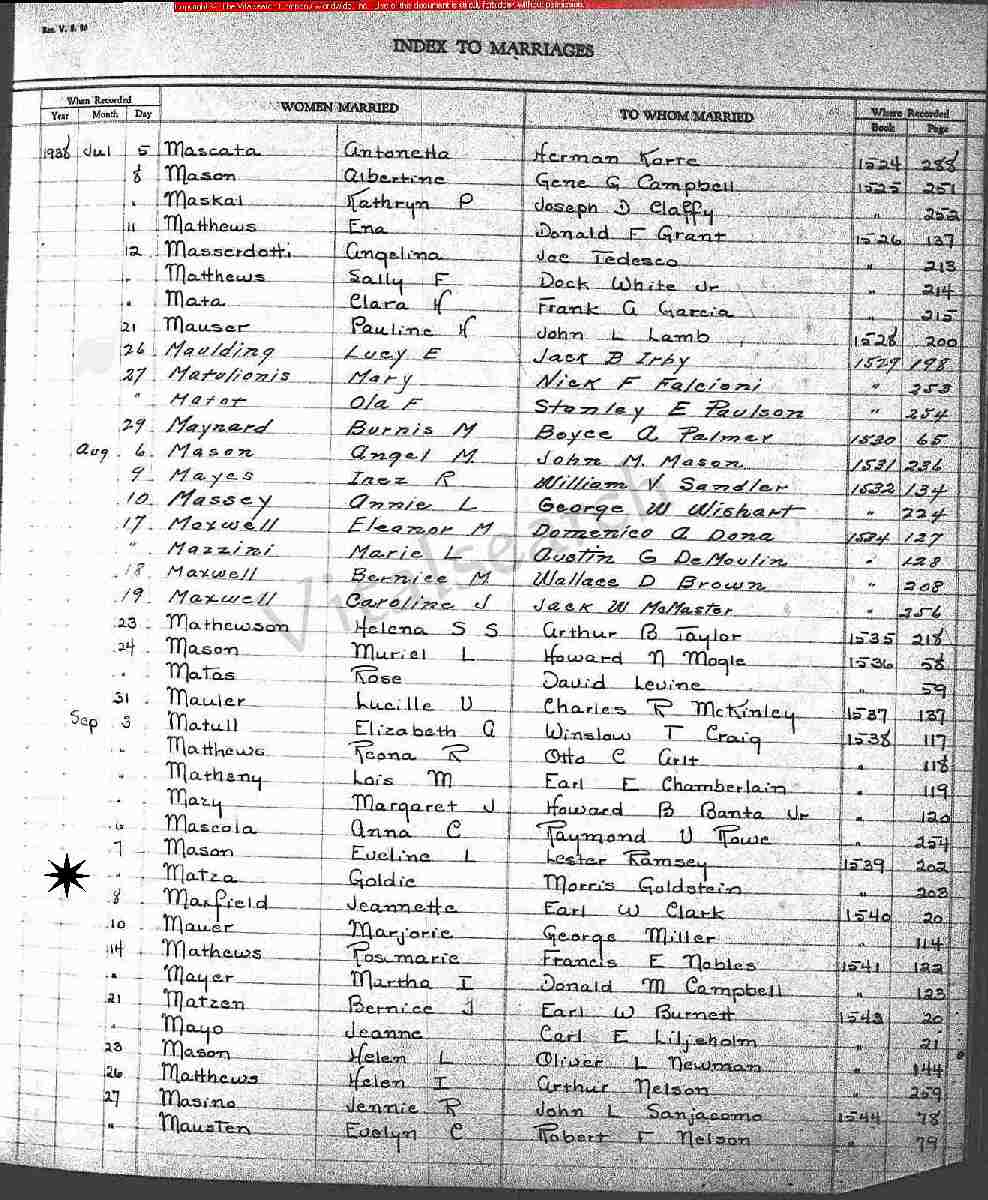 Rec. V. S. 80
INDEX TO MARRIAGES
When Recorded WOMEN MARRIED TO WHOM MARRIED Where Recorded
Year Month Day Book Page
1938 Jul 5 Mascata Antonetta Herman Korre 1524 288
8 Mason Albertine Gene G Campbell 1525 251
" Maskal Kathryn P Joseph D Claffy " 252
11 Matthews Ena Donald F Grant 1526 137
12 Masserdotti Angelina Joe Tedesco " 213
" Matthews Sally F Dock White Jr " 214
" Mata Clara H Frank G Garcia " 215
21 Mauser Pauline H John L Lamb 1528 200
26 Maulding Lucy E Jack B Irby 1529 198
27 Matulionis Mary Nick F Falcioni " 253
" Mator Ola F Stanley E Paulson " 254
29 Maynard Burnis M Boyce A Palmer 1530 65
Aug 6 Mason Angel M John M. Mason 1531 236
9 Mayes Inez R William V Sandler 1532 134
10 Massey Annie L George W Wishart " 224
17 Maxwell Eleanor M Domenico A Dona 1534 127
" Mazzini Marie L Austin G DeMoulin " 128
18 Maxwell Bernice M Wallace D Brown " 208
19 Maxwell Caroline J Jack W McMaster " 256
23 Mathewson Helena S S Arthur B Taylor 1535 218
24 Mason Muriel L Howard N Mogle 1536 58
" Matas Rose David Levine " 59
31 Mauler Lucille V Charles R McKinley 1537 137
Sep 3 Matull Elizabeth A Winslow T Craig 1538 117
" Matthews Reona R Otto C Arlt " 118
" Matheny Lois M Earl E Chamberlain " 119
" Mazy Margaret J Howard B Banta Jr " 120
6 Mascola Anna C Raymond V Rowe " 254
7 Mason Eveline L Lester Ramsey 1539 202
" Matza Goldie Morris Goldstein " 203
8 Maxfield Jeannette Earl W Clark 1540 20
10 Mauer Marjorie George Miller " 114
14 Mathews Rosemarie Francis E Nobles 1541 122
" Mayer Martha I Donald M Campbell " 123
21 Matzen Bernice J Earl W Burnett 1543 20
" Mayo Jeanne Carl E Liljeholm " 21
23 Mason Helen L Oliver L Newman " 144
26 Matthews Helen I Arthur Nelson " 259
27 Masino Jennie R John L Sanjacomo 1544 78
" Mausten Evelyn C Robert F Nelson " 79
Vitalsearch